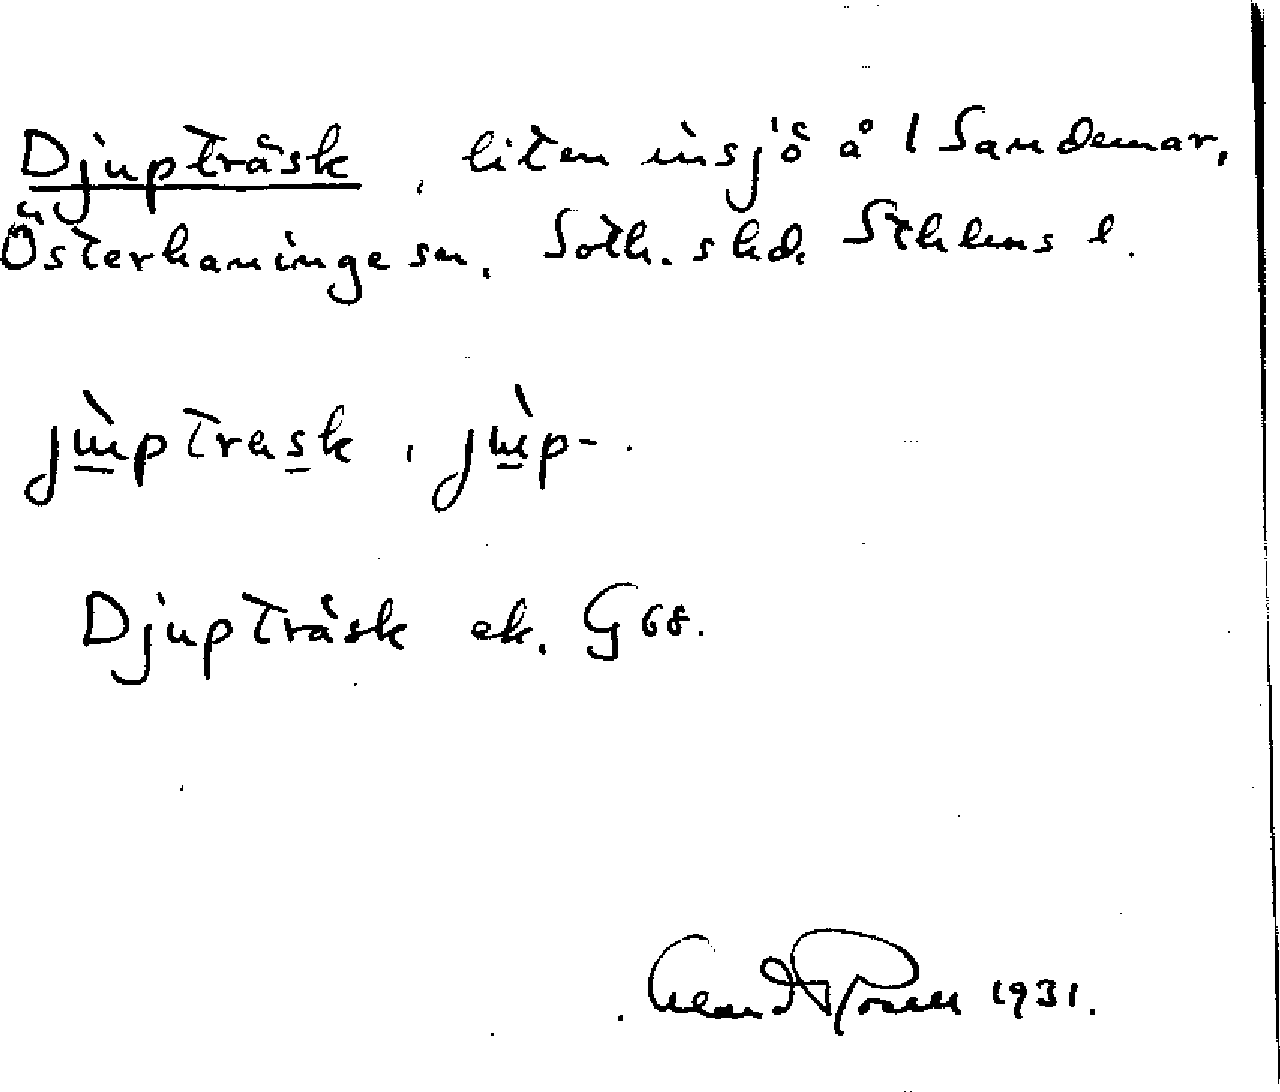 Djupträsk, liten insjö å 1 Sandemar,
Österhaninge sn, Soth.s hd, Sthlms l.
jùptrask, jùp-.
Djupträsk ek. G 68.
1931.